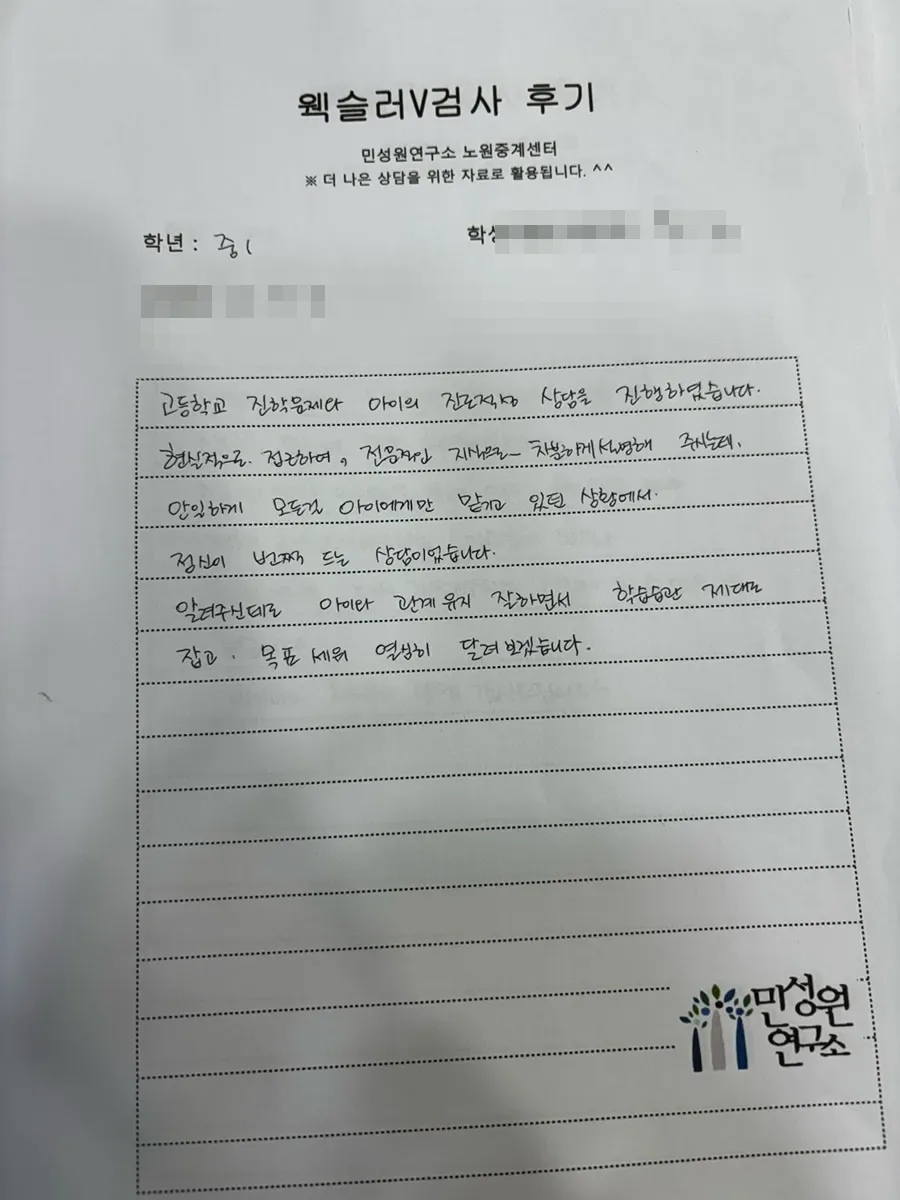 웩슬러V검사 후기
민성원연구소 노원중계센터
※ 더 나은 상담을 위한 자료로 활용됩니다. ^^
학년 : 중1
고등학교 진학문제와 아이의 진로적성 상담을 진행하였습니다.
현실적으로 접근하여, 전문적인 지식으로 차분하게 설명해 주시는데,
안일하게 모든걸 아이에게만 맡기고 있던 상황에서.
정신이 번쩍 드는 상담이었습니다.
알려주신데로 아이와 관계 유지 잘하면서 학습습관 제대로
잡고. 목표 세워 열심히 달려보겠습니다.
민성원
연구소